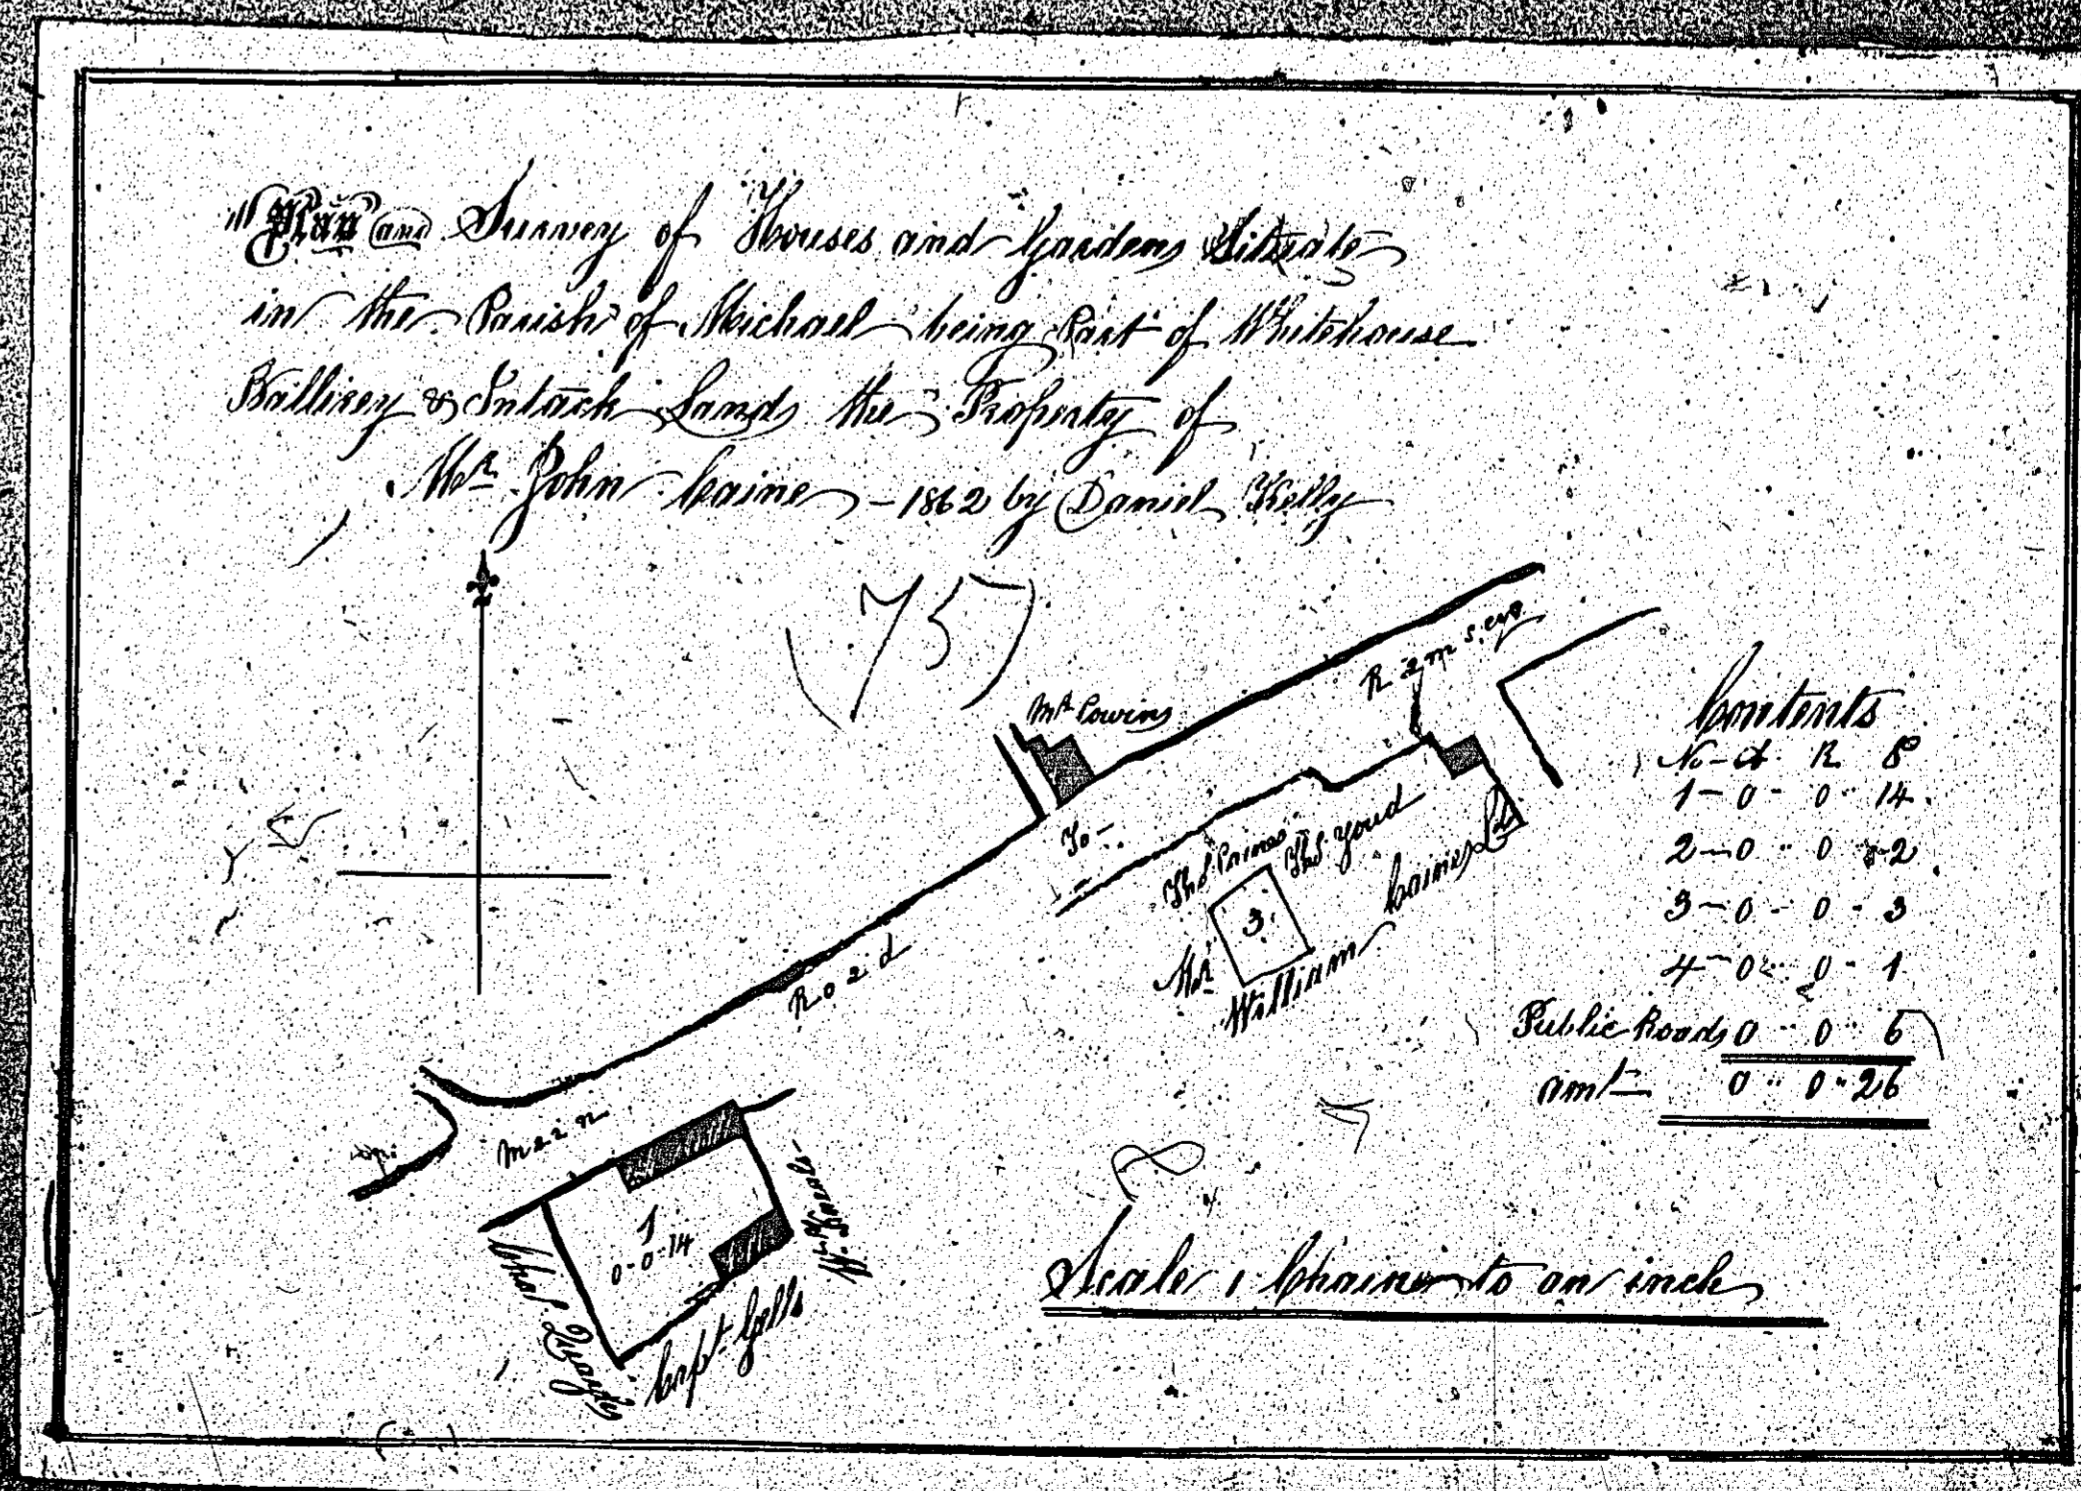 A Plan and Survey of Houses and Gardens Situate
in the Parish of Michael being Part of Whitehouse
Ballirey & Intack Lands the Property of
Mr John Caine - 1862 by Daniel Kelly
(75)
Ramsey
Mr Cowins
To
Thos Caines
Thos Youd
3
Mr William Caines Ld
Road
Main
1
0-0-14
Chas Quayles
Capt Gells
Contents
No - A R P
1 - 0 - 0 - 14
2 - 0 - 0 - 2
3 - 0 - 0 - 3
4 - 0 - 0 - 1
Public Roads 0 - 0 - 6
amt 0 - 0 - 26
Scale 1 Chain to an inch